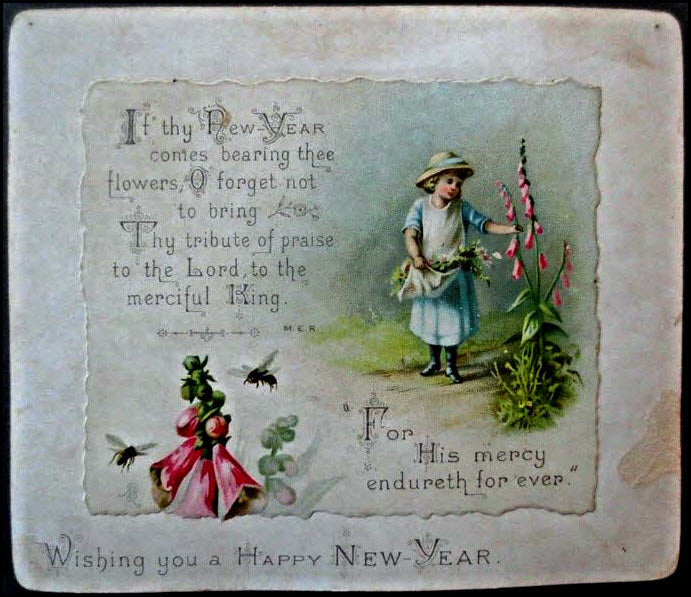 If thy New-Year
comes bearing thee
flowers, O forget not
to bring
Thy tribute of praise
to the Lord, to the
merciful King.
M.E.R.
"For
His mercy
endureth for ever."
Wishing you a Happy New-Year.